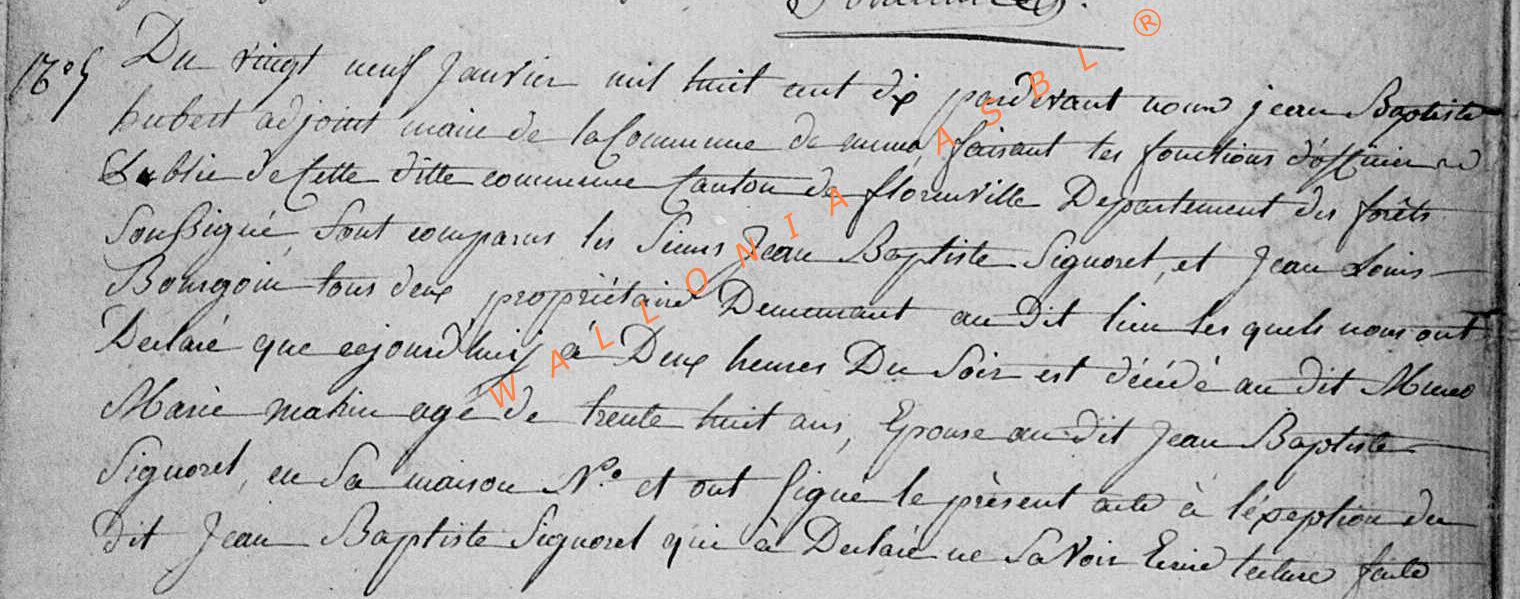 Du vingt neuf Janvier mil huit cent dix pardevant nous jean Baptiste
hubert adjoint maire de la Commune de muno, faisant les fonctions d'officier
Publie de Cette ditte commune Canton de florenville Departement des forêts
Soussigné, Sont comparus les Sieurs Jean Baptiste Signoret, et Jean Louis
Bourgoin tous deux propriétaires Demeurant au Dit lieu les quels nous ont
Declaré que cejourd'huij à Deux heures Du Soir est décédé au dit Muno
Marie mahin agé de trente huit ans, Epouse au dit Jean Baptiste
Signoret, en Sa maison N.º et ont Signé le présent acte à l'éxeption du
dit Jean Baptiste Signoret qui à Declaré ne Savoir Ecrire lecture faite
WALLONIA ASBL ®